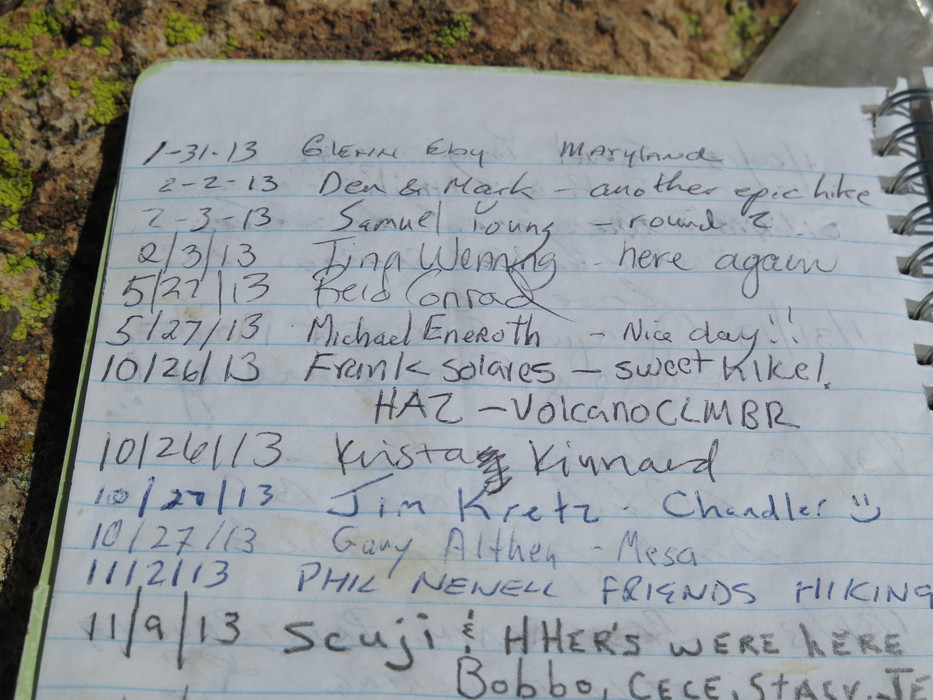 1-31-13 Glenn Eby Maryland
2-2-13 Den & Mark - another epic hike
2-3-13 Samuel Young - round 2
2/3/13 Tina Wenning here again
5/27/13 Reid Conrad
5/27/13 Michael Eneroth - Nice day!!
10/26/13 Frank Solares - sweet hike!
HAZ - VolcanoCLMBR
10/26/13 Krista Kinnard
10/27/13 Jim Kretz - Chandler :)
10/27/13 Gary Althen - Mesa
11/2/13 PHIL NEWELL FRIENDS HIKING
11/9/13 Scuji & HHER'S WERE HERE
Bobbo, CECE, STACY, JE